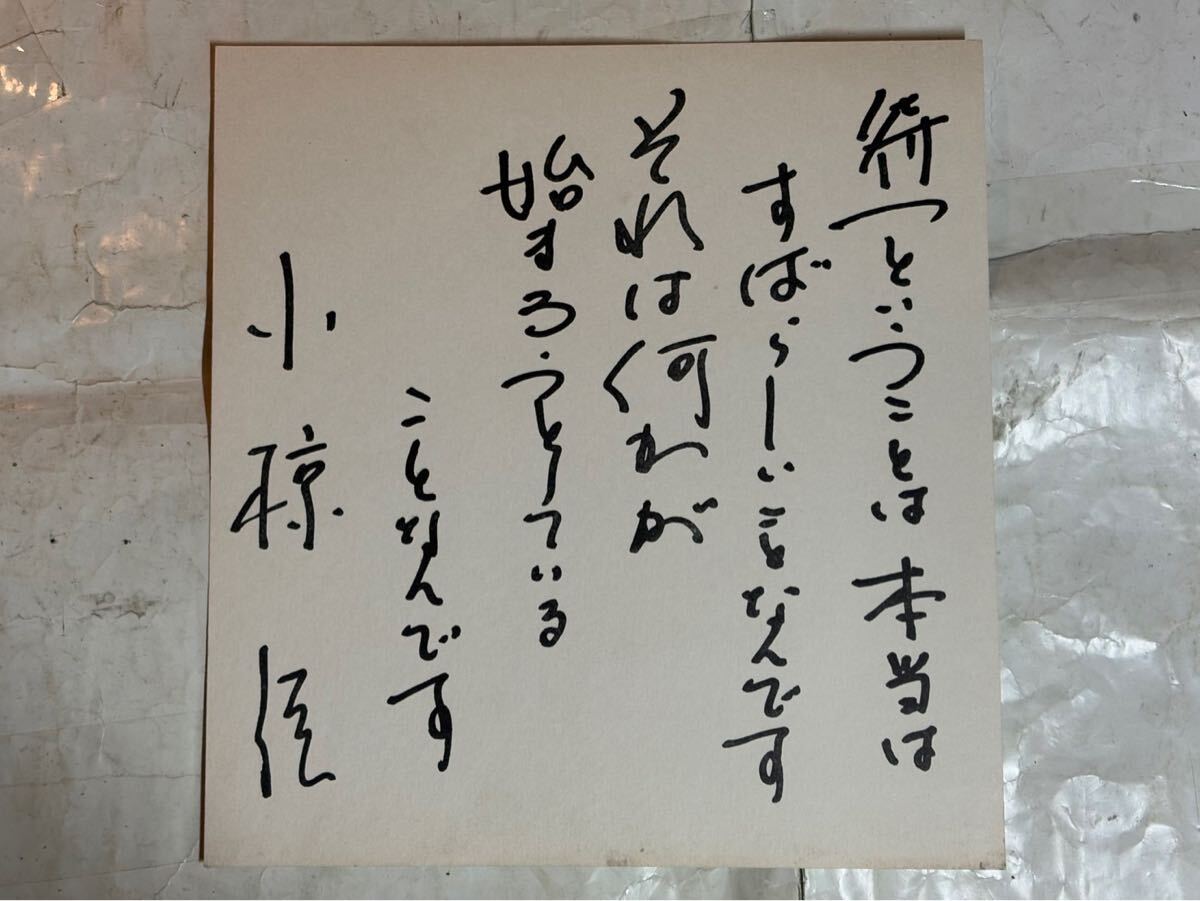 待つということは本当は
すばらしいことなんです
それは何かが
始まろうとしている
ことなんです
小椋佳